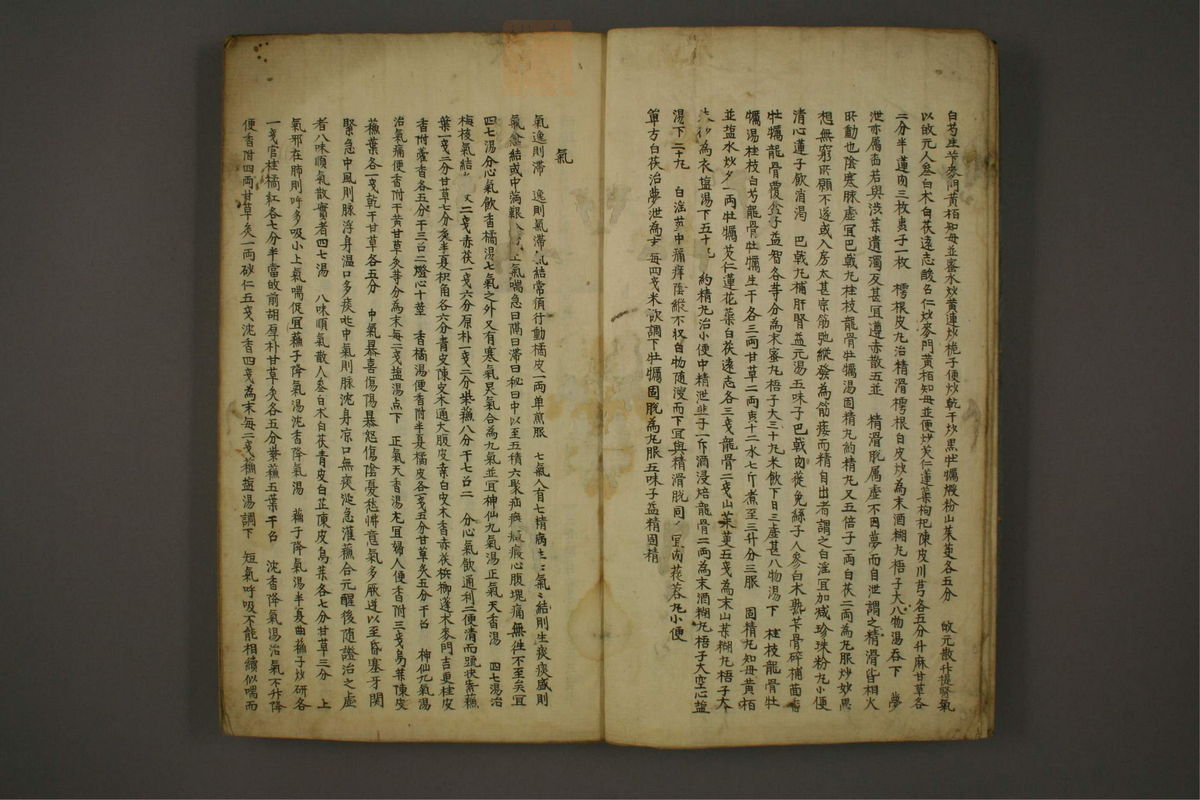 白芍生芐麥門黃栢知母並蜜水炒黃連炒梔子便炒乾干炒黑牡蠣煅粉山茱萸各五分 故元散升提腎氣
以故元人參白朮白茯遠志酸召仁炒麥門黃栢知母並便炒芡仁蓮葉枸杞陳皮川芎各五分升麻甘草各
二分半蓮肉三枚棗子一枚 樗根皮丸治精滑樗根白皮炒為末酒糊丸梧子大八物湯吞下 夢
泄亦屬 若與澁藥遺濁反甚宜遵赤散五並 精滑脫屬虛不因夢而自泄謂之精滑皆相火
所動也陰寒脉虛宜巴戟丸桂枝龍骨牡蠣湯固精丸約精丸又五倍子一両白茯二両為丸服炒妙思
想無窮所願不遂或入房太甚宗筋弛縱發為筋痿而精自出者謂之白淫宜加減珍珠粉丸小便
清心蓮子飲消渴 巴戟丸補肝腎益元湯五味子巴戟肉蓯免絲子人參白朮熟芐骨碎補茴香
牡蠣龍骨覆盆子益智各等分為末蜜丸梧子大三十丸米飲下日三虛甚八物湯下 桂枝龍骨牡
蠣湯桂枝白芍龍骨牡蠣生干各三両甘草二両棗十二水七斤煮至三升分三服 固精丸知母黃栢
並盐水炒夕一両牡蠣芡仁蓮花蘂白茯遠志各三戔龍骨二戔山茱萸五戔為末山藥糊丸梧子大
為衣盐湯下五十丸 約精丸治小便中精泄韭子一斤酒浸焙龍骨二両為末酒糊丸梧子大空心盐
湯下二十丸 白淫莖中痛痒陰縱不收白物随溲而下宜與精滑脫同 宜肉蓯蓉丸小便
單方白茯治夢泄為末每四戔米飲調下牡蠣固脫為丸服五味子益精固精
氣
氣逸則滯 逸則氣滯氣結常須行動橘皮一両单煎服 七氣人有七精病生七氣氣結則生痰痰盛則
氣愈結或中滿艱 上氣喘急曰隔曰滯曰秘曰中以至五積六聚疝癩癥瘕心腹塊痛無徃不至矣宜
四七湯分心氣飲香橘湯七氣之外又有寒氣炅氣合為九氣並宜神仙九氣湯正氣天香湯 四七湯治
梅核氣結 夏二戔赤茯一戔六分厚朴一戔二分紫蘓八分干七召二 分心氣飲通利二便清而踈快紫蘓
葉一戔二分甘草七分灸半夏枳角各六分青皮陳皮木通大腹皮桑白皮木香赤茯梹榔蓬朮麥門吉更桂皮
香附藿香各五分干三召二燈心十莖 香橘湯便香附半夏橘皮各一戔五分甘草灸五分干召 神仙九氣湯
治氣痛便香附干黄甘草灸等分為末每二戔盐湯点下 正氣天香湯尤宜婦人便香附三戔烏藥陳皮
蘓葉各一戔乾干甘草各五分 中氣暴喜傷傷暴怒傷陰憂愁怫意氣多厥逆以至昏塞牙関
緊急中風則脉浮身温口多痰涎中氣則脉沈身凉口無痰涎急灌蘓合元醒後随證治之虛
者八味順氣散實者四七湯 八味順氣散人參白朮白茯青皮白芷陳皮烏藥各七分甘草三分 上
氣邪在肺則呼多吸小上氣喘促宜蘓子降氣湯沈香降氣湯 蘓子降氣湯半夏曲蘓子炒研各
一戔官桂橘紅各七分半當故前胡厚朴甘草灸各五分紫蘓五葉干召 沈香降氣湯治氣不升降
便香附四両甘草灸一両砂仁五戔沈香四戔為末每二戔蘓盐湯調下 短氣呼吸不能相續似喘而